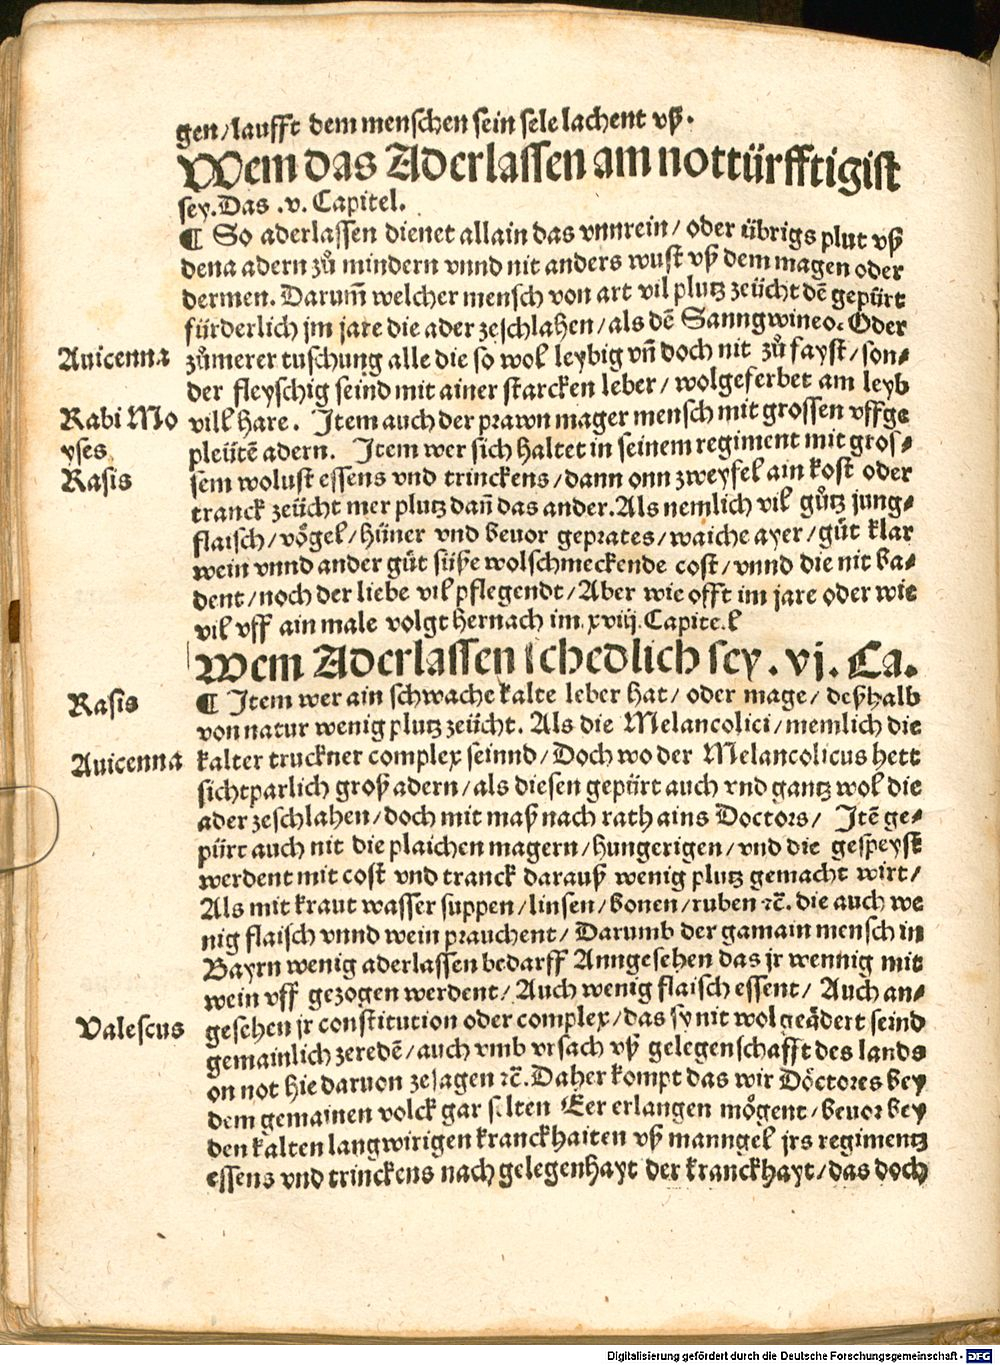 gen/laufft dem menschen sein sele lachent vß.
Wem das Aderlassen am nottürfftigist
sey. Das .v. Capitel.
¶ So aderlassen dienet allain das vnnrein/ oder übrigs plut vß
dena adern zů mindern vnnd nit anders wust vß dem magen oder
dermen. Darum̄ welcher mensch von art vil plutz zeücht dē gepürt
fürderlich jm jare die ader zeschlahen/als dē Sanngwineo. Oder
Auicenna
zůmerer tuschung alle die so wol leybig vn̄ doch nit zů fayst/son⸗
der fleyschig seind mit ainer starcken leber/ wolgeferbet am leyb
Rabi Mo
yses
vill hare. Item auch der prawn mager mensch mit grossen vffge
pleütē adern. Item wer sich haltet in seinem regiment mit gros⸗
Rasis
sem wolust essens vnd trinckens/dann onn zweyfel ain kost oder
tranck zeücht mer plutz dan̄ das ander. Als nemlich vil gůtz jung⸗
flaisch/vögel/hüner vnd beuor geprates/waiche ayer/gůt klar
wein vnnd ander gůt süße wolschmeckende cost/vnnd die nit ba⸗
dent/noch der liebe vil pflegendt/Aber wie offt im jare oder wie
vil vff ain male volgt hernach im. xviij. Capite.l
Wem Aderlassen schedlich sey. vj. Ca.
Rasis
¶ Item wer ain schwache kalte leber hat/ oder mage/ deßhalb
von natur wenig plutz zeücht. Als die Melancolici/memlich die
Auicenna
kalter truckner complex seinnd/Doch wo der Melancolicus hett
sichtparlich groß adern/als diesen gepürt auch vnd gantz wol die
ader zeschlahen/doch mit maß nach rath ains Doctors/ Itē ge⸗
pürt auch nit die plaichen magern/hungerigen/vnd die gespeyst
werdent mit cost vnd tranck darauß wenig plutz gemacht wirt/
Als mit kraut wasser suppen/linsen/bonen/ruben ꝛc̄. die auch we
nig flaisch vnnd wein prauchent/ Darumb der gamain mensch in
Bayrn wenig aderlassen bedarff Anngesehen das jr wennig mit
wein vff gezogen werdent/ Auch wenig flaisch essent/ Auch an⸗
Valescus
gesehen jr constitution oder complex/das sy nit wol geädert seind
gemainlich zeredē/auch vmb vrsach vß gelegenschafft des lands
on not hie daruon zesagen ꝛc̄. Daher kompt das wir Döctores bey
dem gemainen volck gar selten Eer erlangen mögent/beuor bey
den kalten langwirigen kranckhaiten vß manngel jrs regimentz
essens vnd trinckens nach gelegenhayt der kranckhayt/das doch
Digitalisierung gefördert durch die Deutsche Forschungsgemeinschaft - DFG